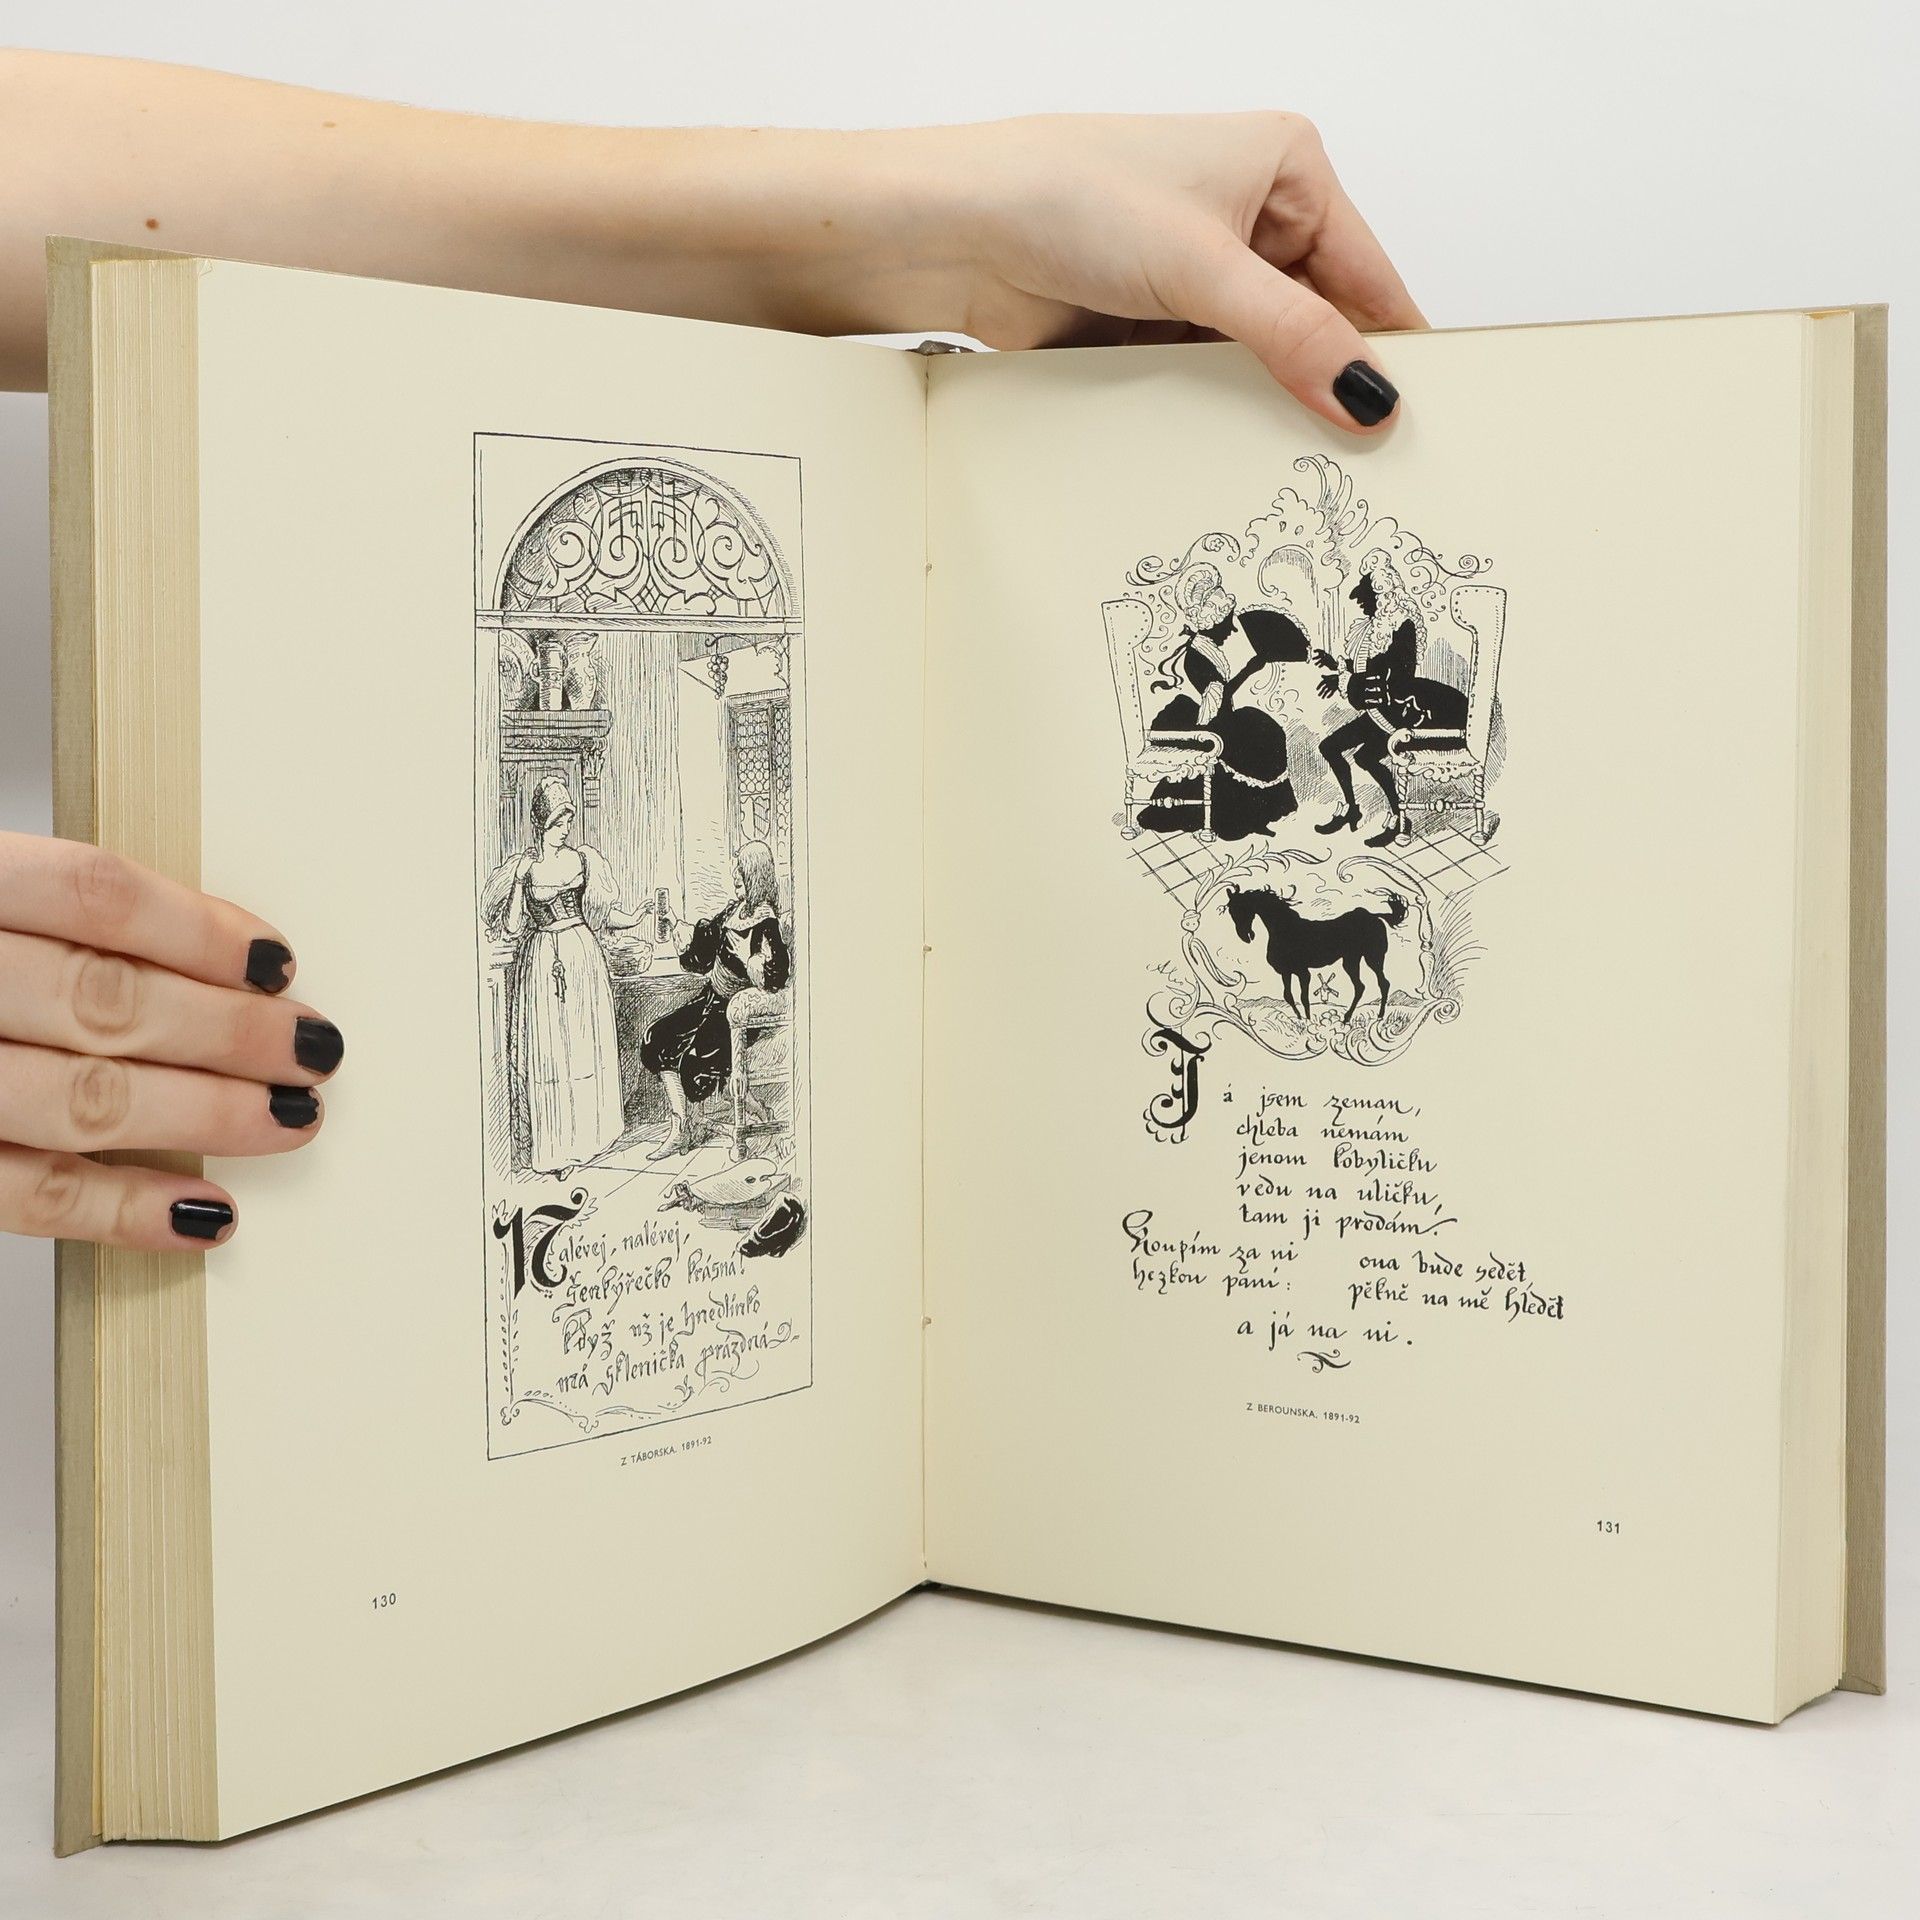 Nalévej, nalévej,
Šenkýřečko krásná!
když už je hnedlinko
má sklenička prázdná
Z TÁBORSKA. 1891-92
130
Já jsem zeman,
chleba nemám
jenom kobyličku
vedu na uličku,
tam ji prodám.
Koupím za ni
hezkou paní:
ona bude sedět,
pěkně na mě hledět
a já na ni.
Z BEROUNSKA. 1891-92
131